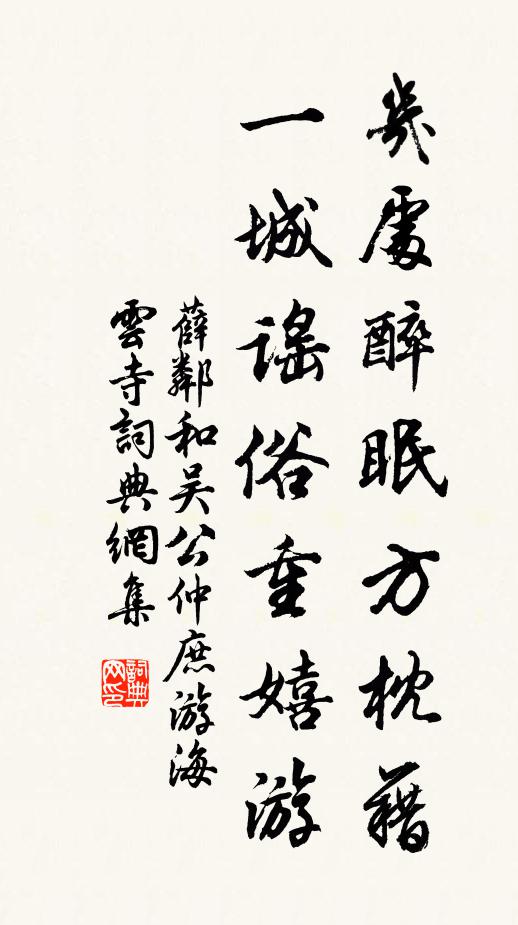 幾處醉眠方枕藉
一城謠俗重嬉游
薛鄰和吴公仲庶游海
雲寺詞典網集
詞典
网印